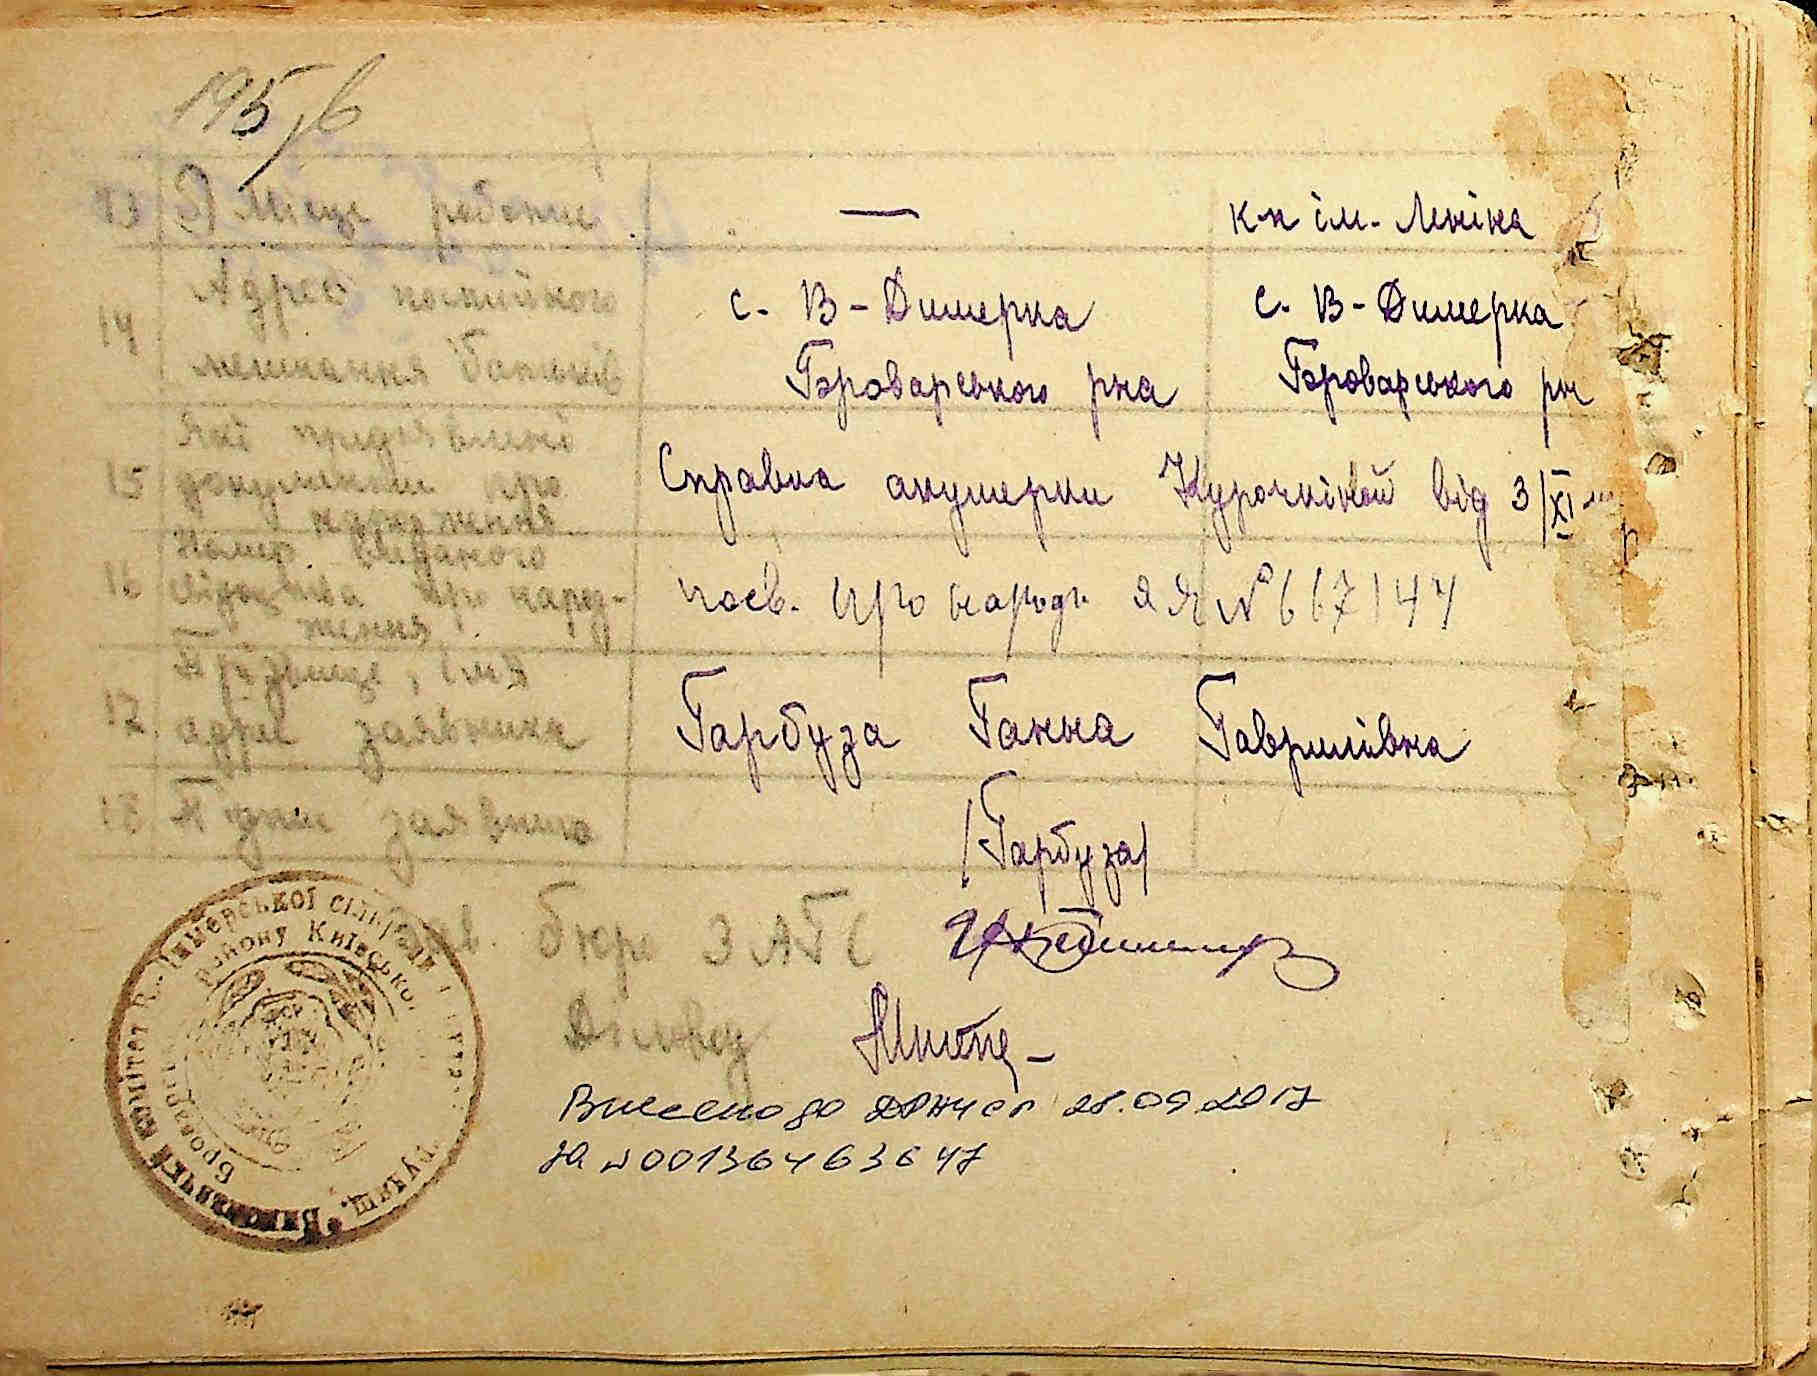 195
13 Місце роботи — к-п ім. Леніна
14 Адрес постійного с. В-Димерка с. В-Димерка
мешкання батьків Броварського рна Броварського рн
15 Які пред'явлено
документи про Справка акушерки Курочкіной від 3/XI
народження
16 Номер виданого
свідоцтва про народ- посв. про народж. ЯЯ № 667144
ження
17 Прізвище, ім'я
адрес заявника Гарбуза Ганна Гаврилівна
18 Підпис заявника /Гарбуза/
Зав. бюро ЗАГС
Діловод
Внесено до ДРАЦСГ 28.09.2017
за № 00136463647
Виконавчий комітет В.-Димерської сільради
Броварського району Київської